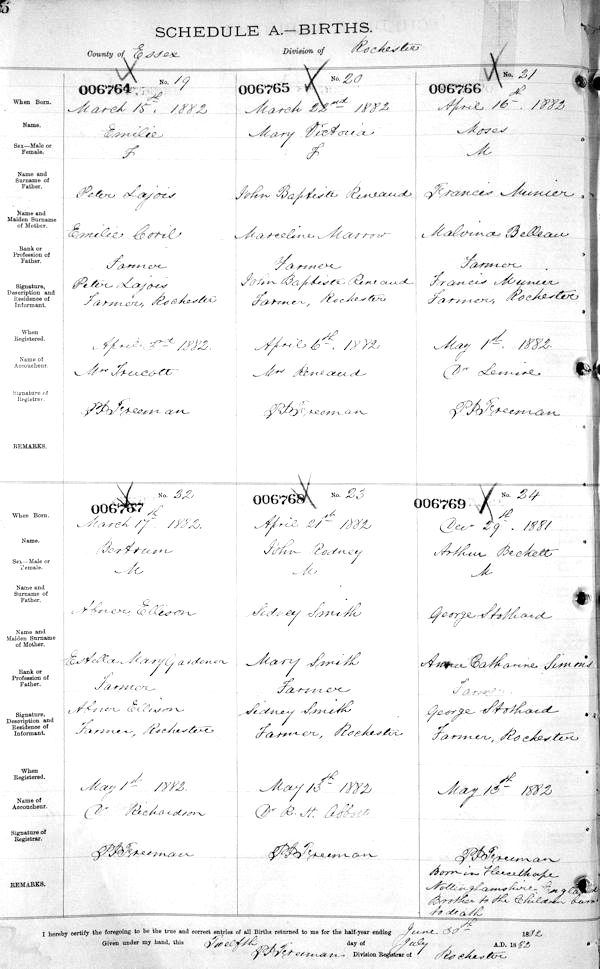 5
SCHEDULE A.—BIRTHS.
County of Essex Division of Rochester
006764 No. 19 006765 No. 20 006766 No. 21
When Born. March 15th. 1882 March 22nd 1882 April 16th. 1882
Name. Emilie Mary Victoria Moses
Sex—Male or Female. F F M
Name and Surname of Father. Peter Lajois John Baptiste Reneaud Francis Munier
Name and Maiden Surname of Mother. Emilie Coril Marceline Marrow Malvina Belleau
Rank or Profession of Father. Farmer Farmer Farmer
Signature, Description and Residence of Informant. Peter Lajois Farmer, Rochester John Baptiste Reneaud Farmer, Rochester Francis Munier Farmer, Rochester
When Registered. April 1882. April 6th. 1882 May 1st. 1882
Name of Accoucheur. Mrs Trucott Mrs Reneaud Dr Lemire
Signature of Registrar. Freeman Freeman Freeman
REMARKS.
006767 No. 22 006768 No. 23 006769 No. 24
When Born. March 17th 1882. April 21st 1882 Dec 29th. 1881
Name. Bertrum John Rodney Arthur Beckett
Sex—Male or Female. M M M
Name and Surname of Father. Abner Ellison Sidney Smith George Stothard
Name and Maiden Surname of Mother. Estella Mary Gardener Mary Smith Catharine Simons
Rank or Profession of Father. Farmer Farmer Farmer
Signature, Description and Residence of Informant. Abner Ellison Farmer, Rochester Sidney Smith Farmer, Rochester George Stothard Farmer, Rochester
When Registered. May 1st 1882. May 13th 1882 May 13th 1882
Name of Accoucheur. Dr Richardson Dr R. H. Abbott
Signature of Registrar. Freeman Freeman Freeman
REMARKS. Born in
Nottinghamshire England
Brother to the Children burnt
to death
I hereby certify the foregoing to be the true and correct entries of all Births returned to me for the half-year ending June 30th 1882
Given under my hand, this Twelfth day of July A.D. 1882
Freeman Division Registrar of Rochester